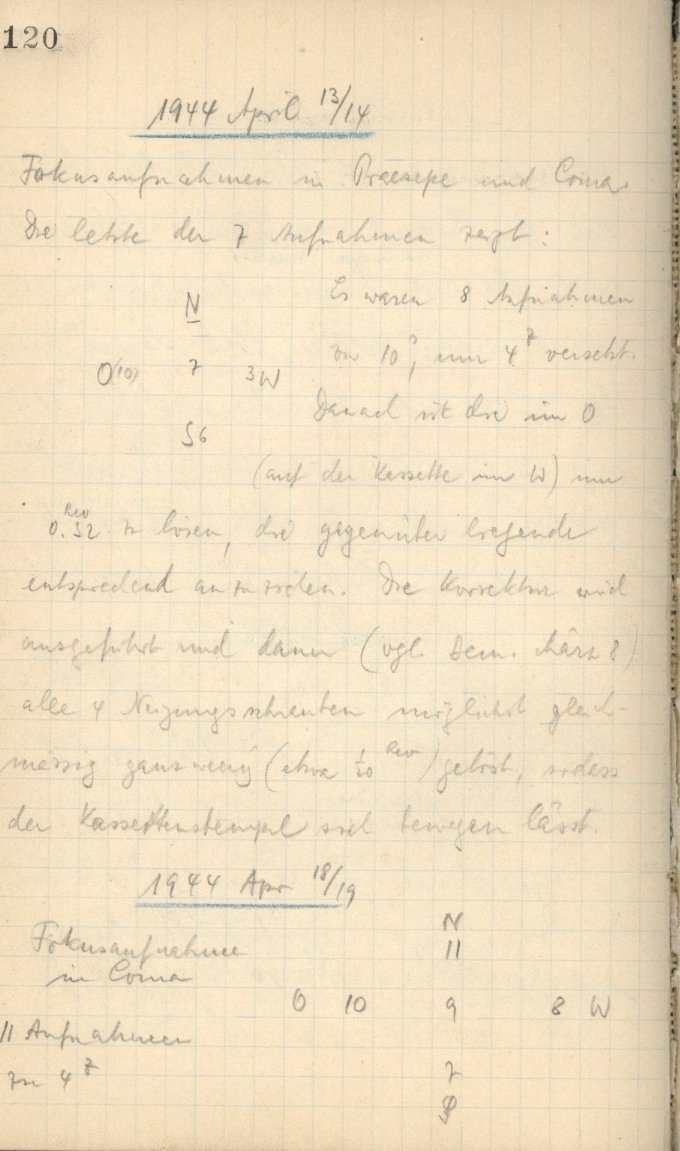 120
1944 April 13/14
Fokusaufnahmen in Praesepe und Coma.
Die letzte der 7 Aufnahmen zeigt:
N
Es waren 8 Aufnahmen
zu 10s, um 4z versetzt.
O(10) 7 3W
Danach ist die im O
S6
(auf der Kassette im W) um
0.32 Rev zu lösen, die gegenüber liegende
entsprechend anzuziehen. Die Korrektur wird
ausgeführt und dann (vgl. Bem. März 8)
alle 4 Neigungsschrauben möglichst gleich-
mässig ganz wenig (etwa 1/20 Rev) gelöst, sodass
der Kassettenstempel sich bewegen lässt.
1944 Apr 18/19
N
Fokusaufnahme 11
in Coma
O 10 9 8 W
11 Aufnahmen
zu 4z 7
S